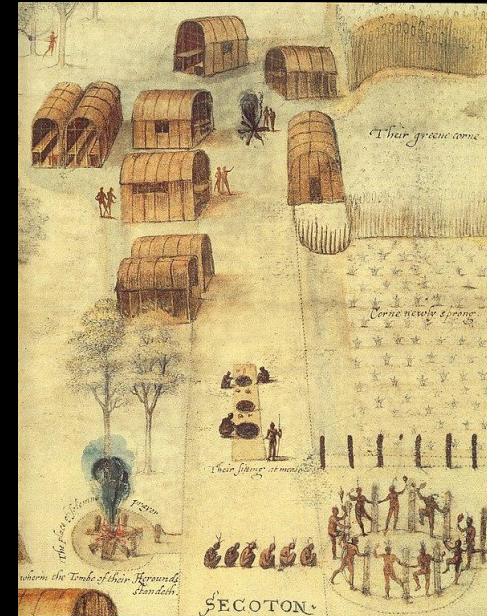 Their greene corne
Corne newly sprong.
Their sitting at meate
The place of solemne prayer
wherin the Tombe of their Herounds
standeth.
SECOTON.